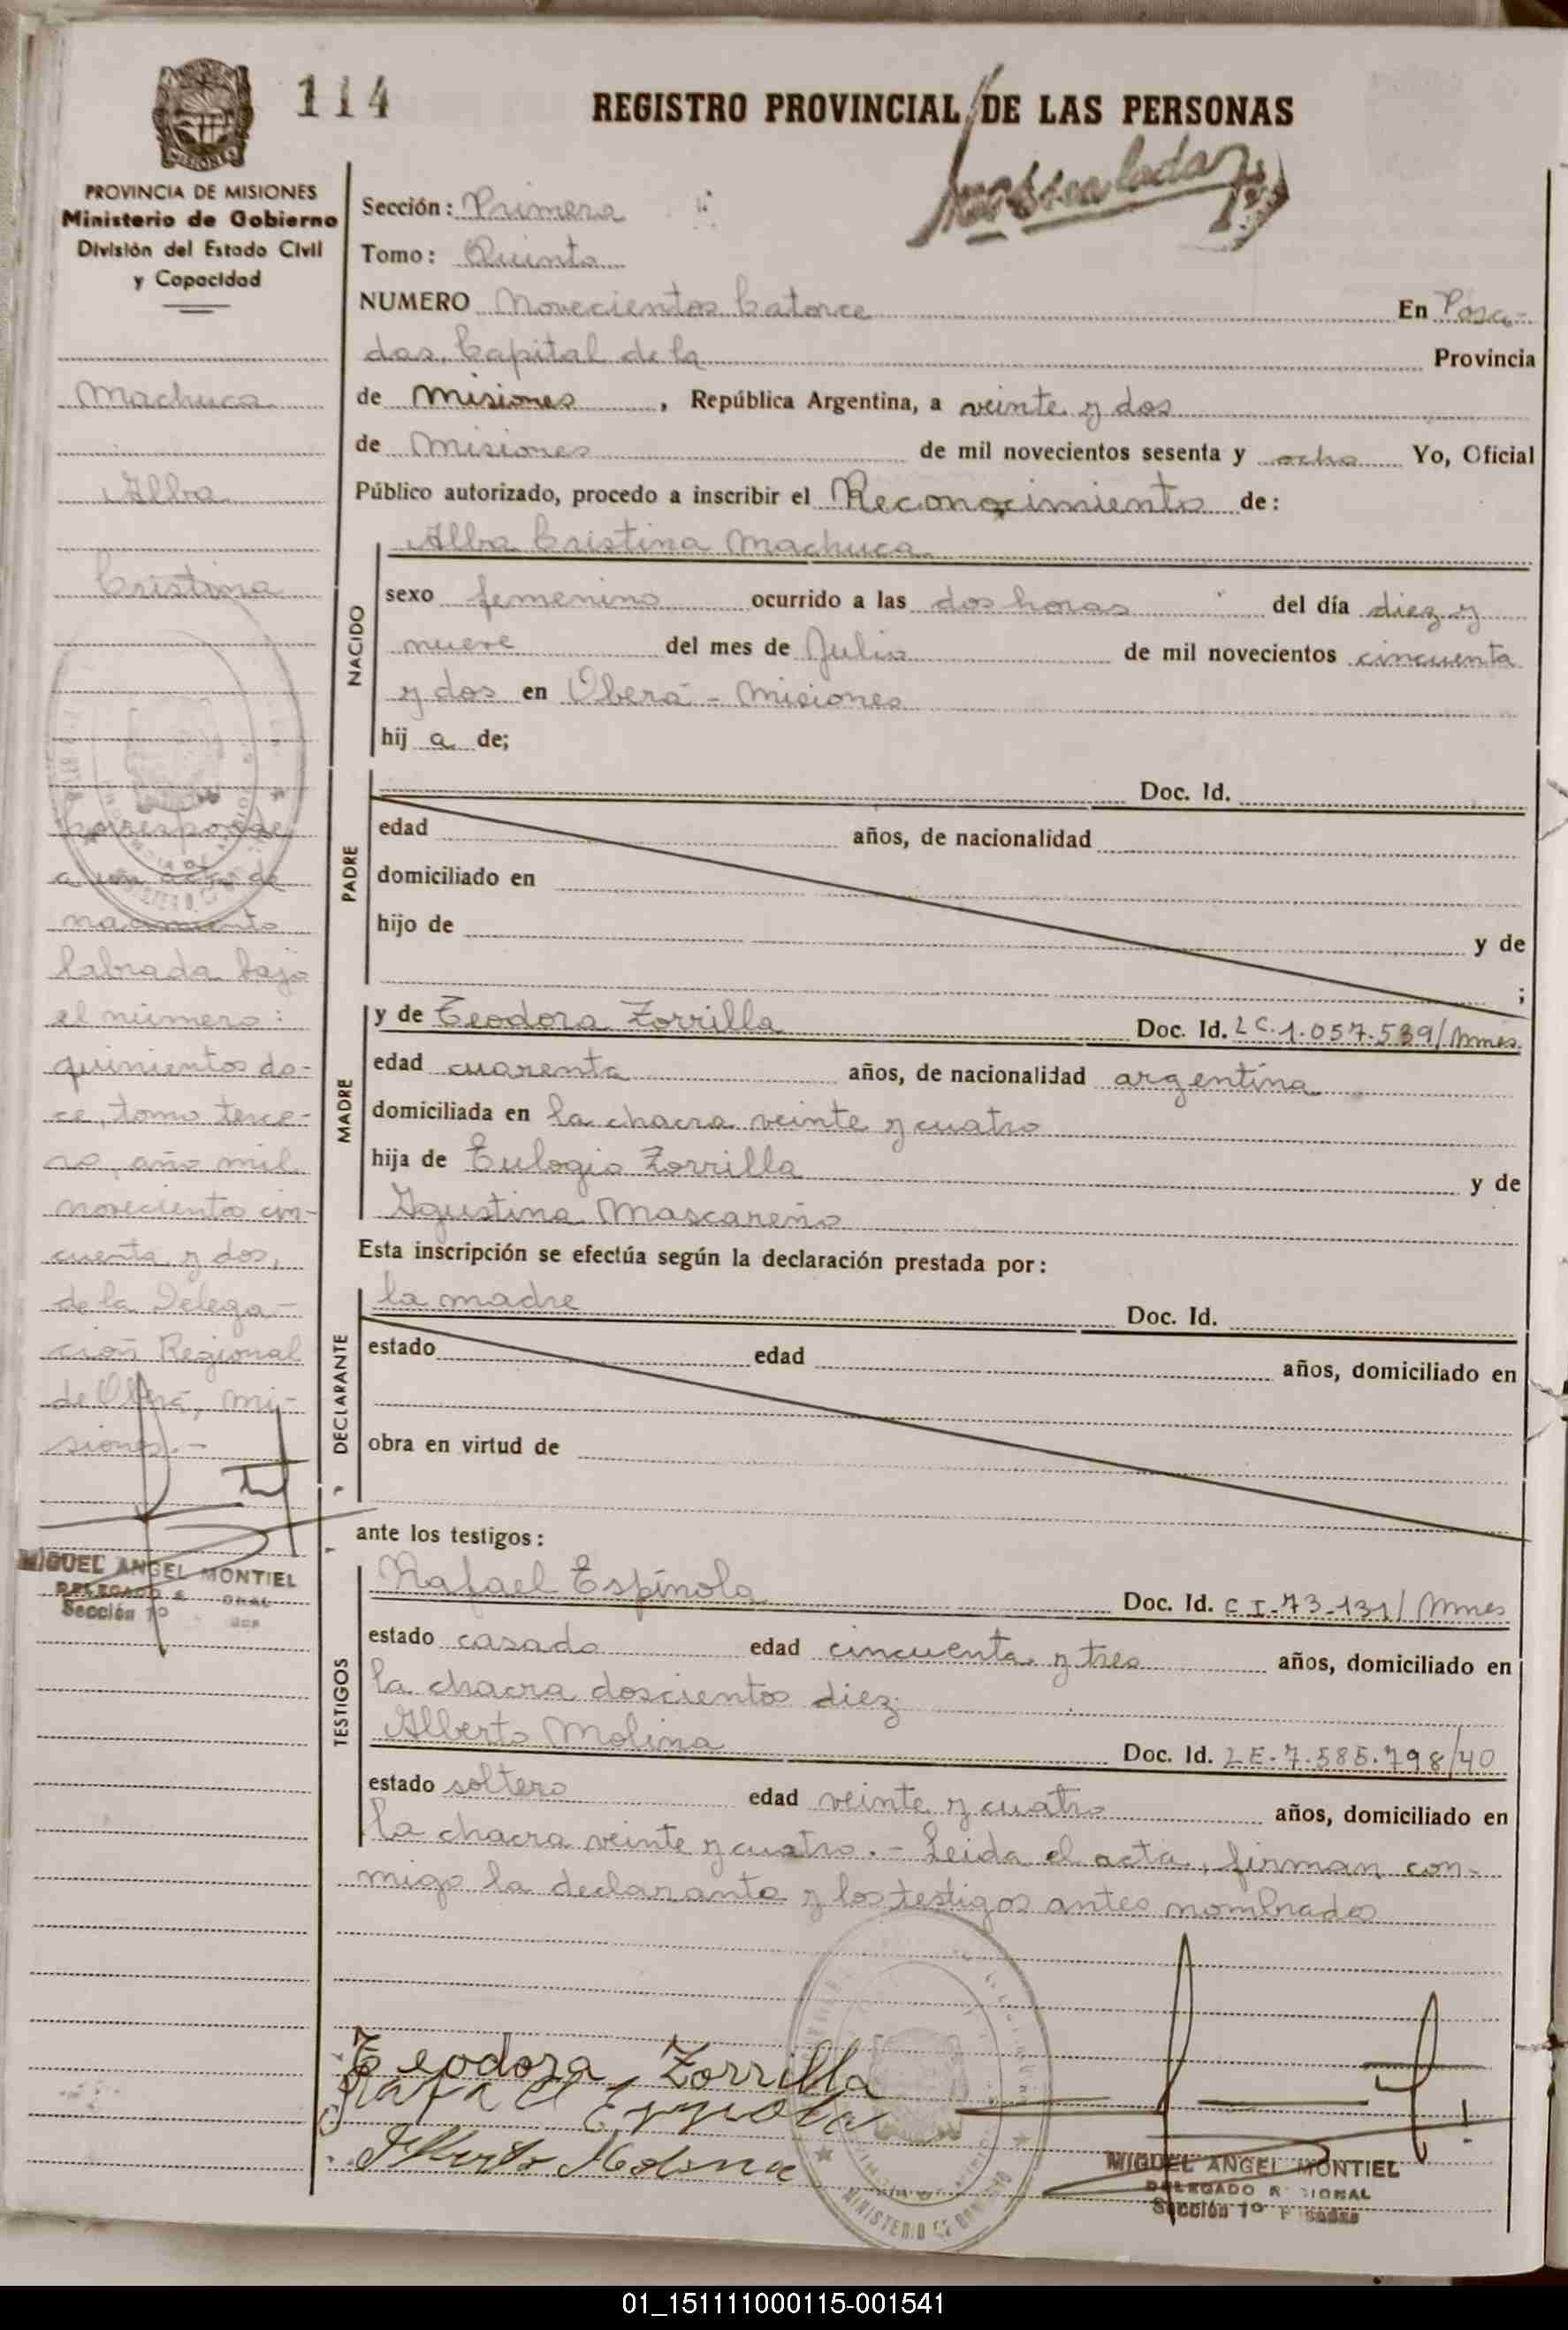 114
REGISTRO PROVINCIAL DE LAS PERSONAS
PROVINCIA DE MISIONES
Ministerio de Gobierno
División del Estado Civil
y Capacidad
Sección: Primera
Tomo: Quinto
NUMERO Novecientos Catorce En Posa-
das, Capital de la Provincia
de Misiones, República Argentina, a veinte y dos
de Misiones de mil novecientos sesenta y ocho Yo, Oficial
Público autorizado, procedo a inscribir el Reconocimiento de:
Alba Cristina Machuca
NACIDO
sexo femenino ocurrido a las dos horas del día diez y
nueve del mes de Julio de mil novecientos cincuenta
y dos en Oberá - Misiones
hij a de;
PADRE
Doc. Id.
edad años, de nacionalidad
domiciliado en
hijo de y de
;
MADRE
y de Teodora Zorrilla Doc. Id. LC. 1.057.539/Mnes
edad cuarenta años, de nacionalidad argentina
domiciliada en la chacra veinte y cuatro
hija de Eulogio Zorrilla y de
Agustina Mascareño
Esta inscripción se efectúa según la declaración prestada por:
DECLARANTE
la madre Doc. Id.
estado edad años, domiciliado en
obra en virtud de
ante los testigos:
TESTIGOS
Rafael Espínola Doc. Id. C I-73-131/Mnes
estado casado edad cincuenta y tres años, domiciliado en
la chacra doscientos diez
Alberto Molina Doc. Id. LE-7.585.798/40
estado soltero edad veinte y cuatro años, domiciliado en
la chacra veinte y cuatro.- Leida el acta, firman con-
migo la declarante y los testigos antes nombrados
Teodora Zorrilla
Rafael Espinola
Alberto Molina
MIGUEL ANGEL MONTIEL
DELEGADO REGIONAL
Sección 1º Posadas
Machuca
Alba
Cristina
Corresponde
a un acta de
nacimiento
labrada bajo
el número:
quinientos do-
ce, tomo terce-
ro, año mil
novecientos cin-
cuenta y dos,
de la Delega-
ción Regional
de Oberá, Mi-
siones.-
MIGUEL ANGEL MONTIEL
DELEGADO
Sección 1º
MINISTERIO DE GOBIERNO
01_151111000115-001541